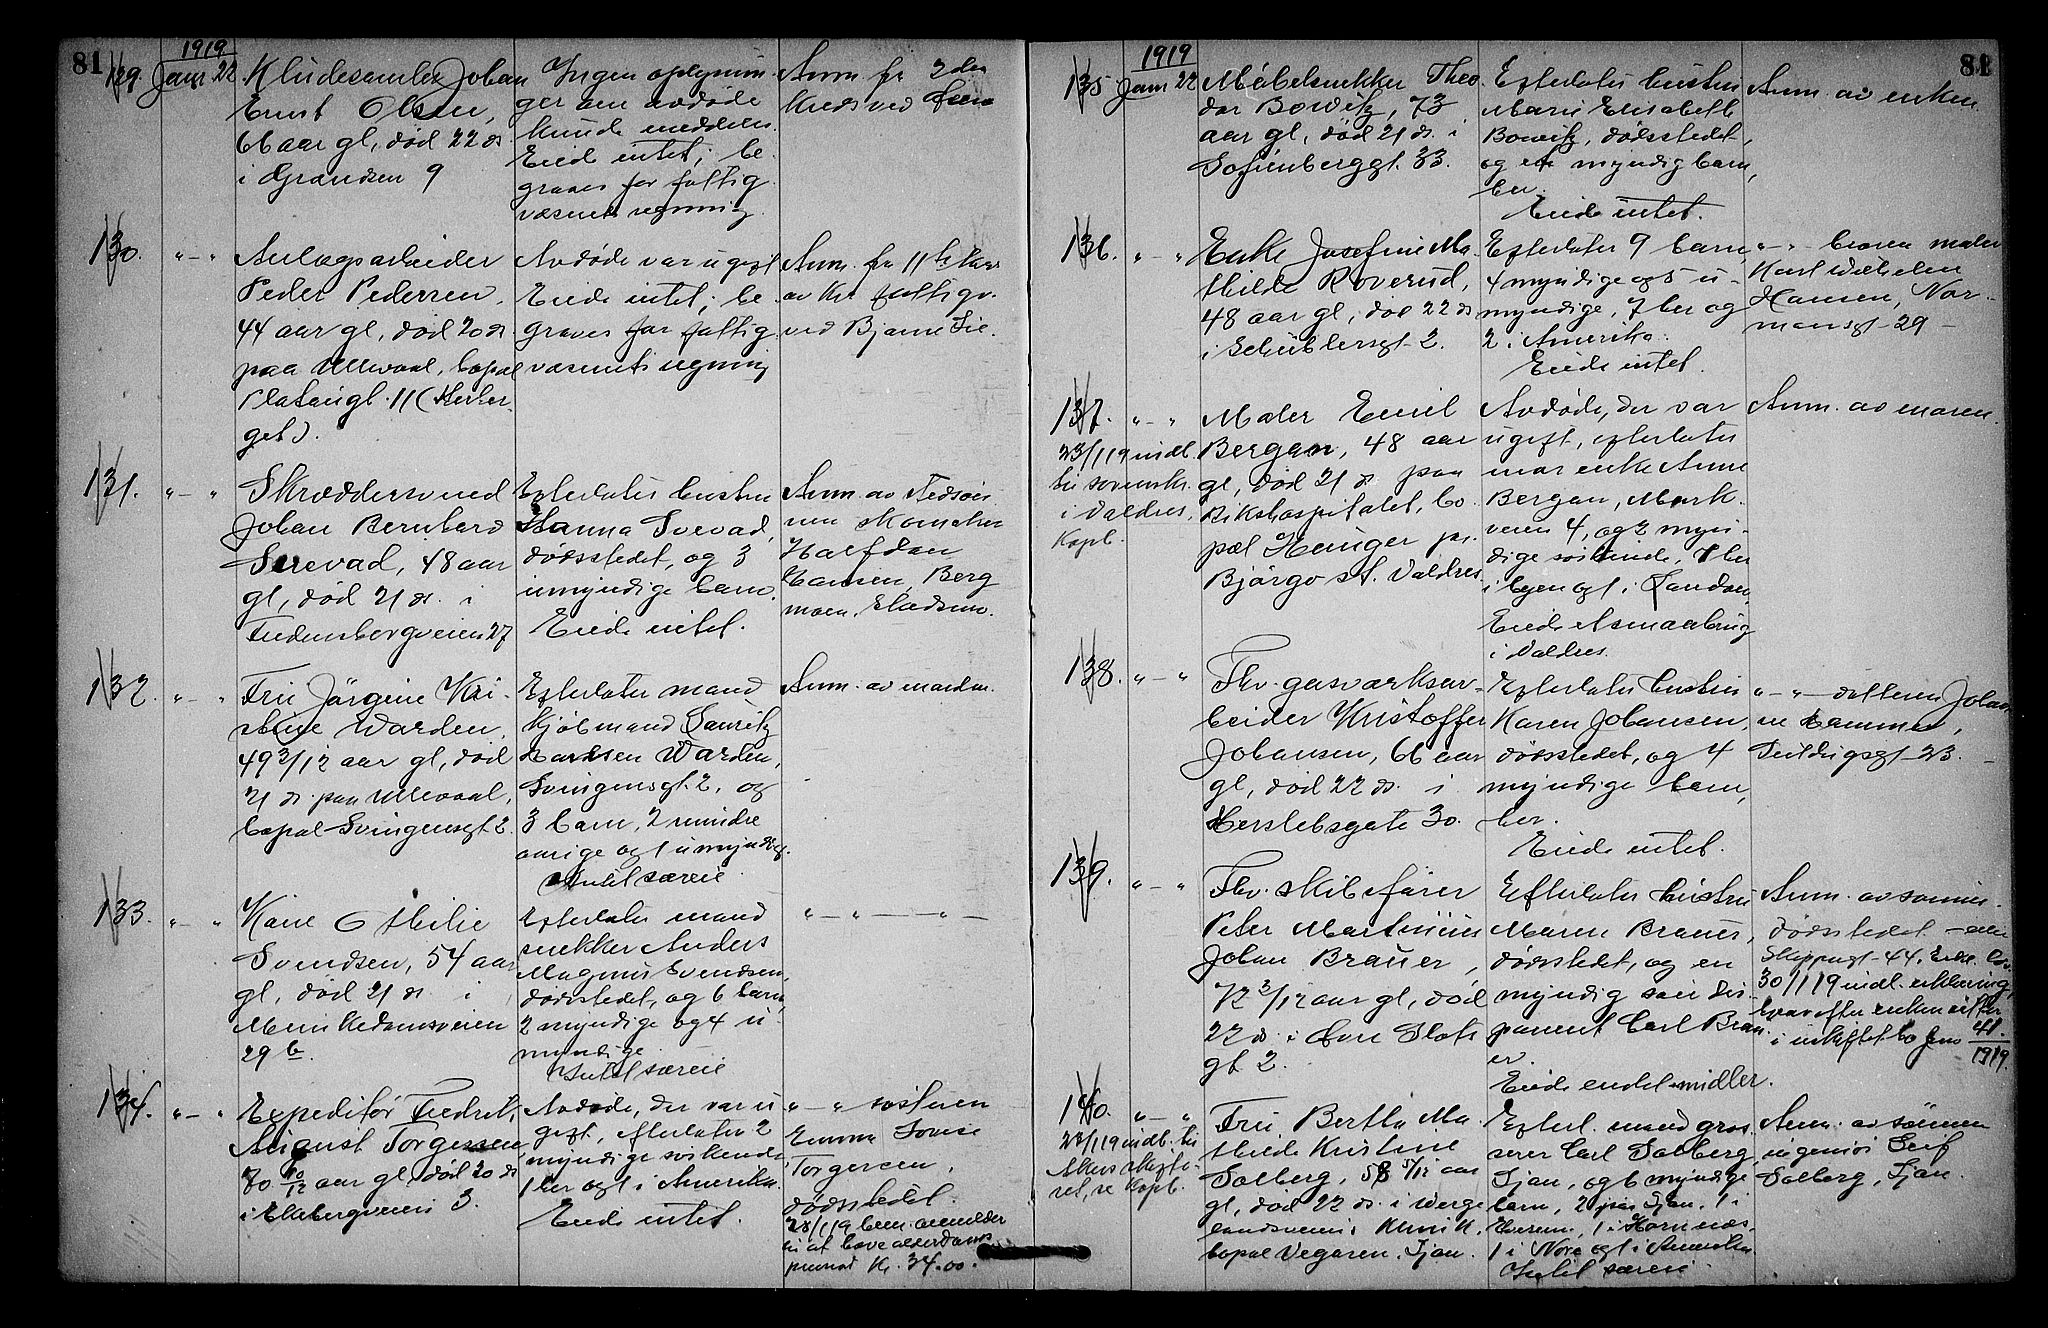 81
1919
129. Jan 22.
Kludesamler Johan
Ernst Olsen,
66 aar gl, död 22 ds
i Grændsen 9
Ingen oplysnin-
ger om avdöde
kunde meddeles.
Eiede intet; be-
graves for fattig
væsenets regning.
Anm. fra 2den
Kreds ved
130. " - "
Anlægsarbeider
Peder Pedersen,
44 aar gl, död 20 ds.
paa Ullevaal, bopæl
Platousgt. 11 (Herber-
get).
Avdöde var ugift
Eiede intet; be-
graves for fattig
væsenets regning
Anm. fra 11te Kreds
av Kr. fattigv.
ved Bjarne Lie.
131. " - "
Skræddersvend
Johan Bernhard
Svevad, 48 aar
gl, död 21 ds. i
Fredensborgveien 27
Efterlater hustru
Hanna Svevad,
dödsstedet, og 3
umyndige barn.
Eiede intet.
Anm. av
skomaker
Halfdan
Hansen, Berg
moen,
132. " - "
Fru Jörgine Kri-
stine Warden,
49 3/12 aar gl, död
21 ds. paa Ullevaal,
bopæl Svingensgt. 2.
Efterlater mand
kjöbmand Lauritz
Warden,
Svingensgt. 2, og
3 barn, 2 mindre
aarige og 1 umyndig.
Intet særeie.
Anm. av manden.
133. " - "
Kone Othilie
Svendsen, 54 aar
gl, död 21 ds. i
Munkedamsveien
29 b.
Efterlater mand
snekker Anders
Magnus Svendsen,
dödsstedet, og 6 barn,
2 myndige og 4 u-
myndige.
Intet særeie
" - " - " -
134. " - "
Expeditör Fredrik
August Torgersen,
70 10/12 aar gl, död 20 ds
i Ekebergveien 3.
Avdöde, der var u
gift, efterlater 2
myndige söskende,
1 her og 1 i Amerika.
Eiede intet.
" - " sösteren
Emma Lovise
Torgersen,
dödsstedet.
28/1 19 bem. anmelder
til at have alderdoms
kr. 34.00.
81
1919
135 Jan 22
Møbelsnekker Theo-
dor Bowitz, 73
aar gl, död 21 ds. i
Sofienberggt. 33.
Efterlater hustru
Marie Elisabeth
Bowitz, dödsstedet,
og et myndig barn,
her.
Eiede intet.
Anm. av enken.
136. " - "
Enke Josefine Ma-
thilde Roverud,
48 aar gl, död 22 ds
i Schüblersgt. 2.
Efterlater 9 barn
4 myndige og 5 u-
myndige, 7 her og
2 i Amerika.
Eiede intet.
" - " broren maler
Karl Wilhelm
Hansen, Nor-
mansgt. 29 -
137. " - "
23/1 19 indb.
til sorenskr.
i Valdres.
Kopb.
Maler Emil
Bergan, 48 aar
gl, död 21 ds paa
Rikshospitalet, bo-
pæl Heninger pr.
Bjørgo st. Valdres
Avdöde, der var
ugift, efterlater
mor enke Anne
Bergan, Mark-
veien 4, og 2 myn-
dige söskende, 1 her
i byen og 1 i London.
Eiede et smaabruk
i Valdres.
Anm. av moren.
138. " - "
Fhv. gasverksar-
beider Kristoffer
Johansen, 66 aar
gl, död 22 ds. i
Herslebsgate 30.
Efterlater hustru
Karen Johansen,
dödsstedet, og 4
myndige barn,
her.
Eiede intet.
" - " - datteren Johan-
ne Hammer,
Seilduksgt. 23. -
139. " - "
Fhv. skibsförer
Peter Martinius
Johan Brauer,
72 3/12 aar gl, död
22 ds. i Övre Slots
gt 2.
Efterlater hustru
Maren Brauer,
dödsstedet, og en
myndig sön dis-
ponent Carl Brau-
er.
Eiede endel midler.
Anm. av sönnen.
dödsstedet -
Skippergt 44.
30/1 19 indl. erklæring
efter enken sitter
i uskiftet bo Jour 41.
1919.
140. " - "
28/1 19 indb. til
Akers skifte-
ret, se Kopb.
Fru Bertha Ma-
thilde Kristine
Solberg, 58 5/12 aar
gl, död 22 ds. i Werge
landsveiens klinik.
bopæl Vegaren, Ljan.
Efterl. mand gros-
serer Carl Solberg,
Ljan, og 6 myndige
barn, 2 paa Ljan, 1 i
1 i Hornnæs,
1 i Nore og 1 i Amerika
Intet særeie
Anm. av sönnen
ingeniör Leif
Solberg, Ljan.